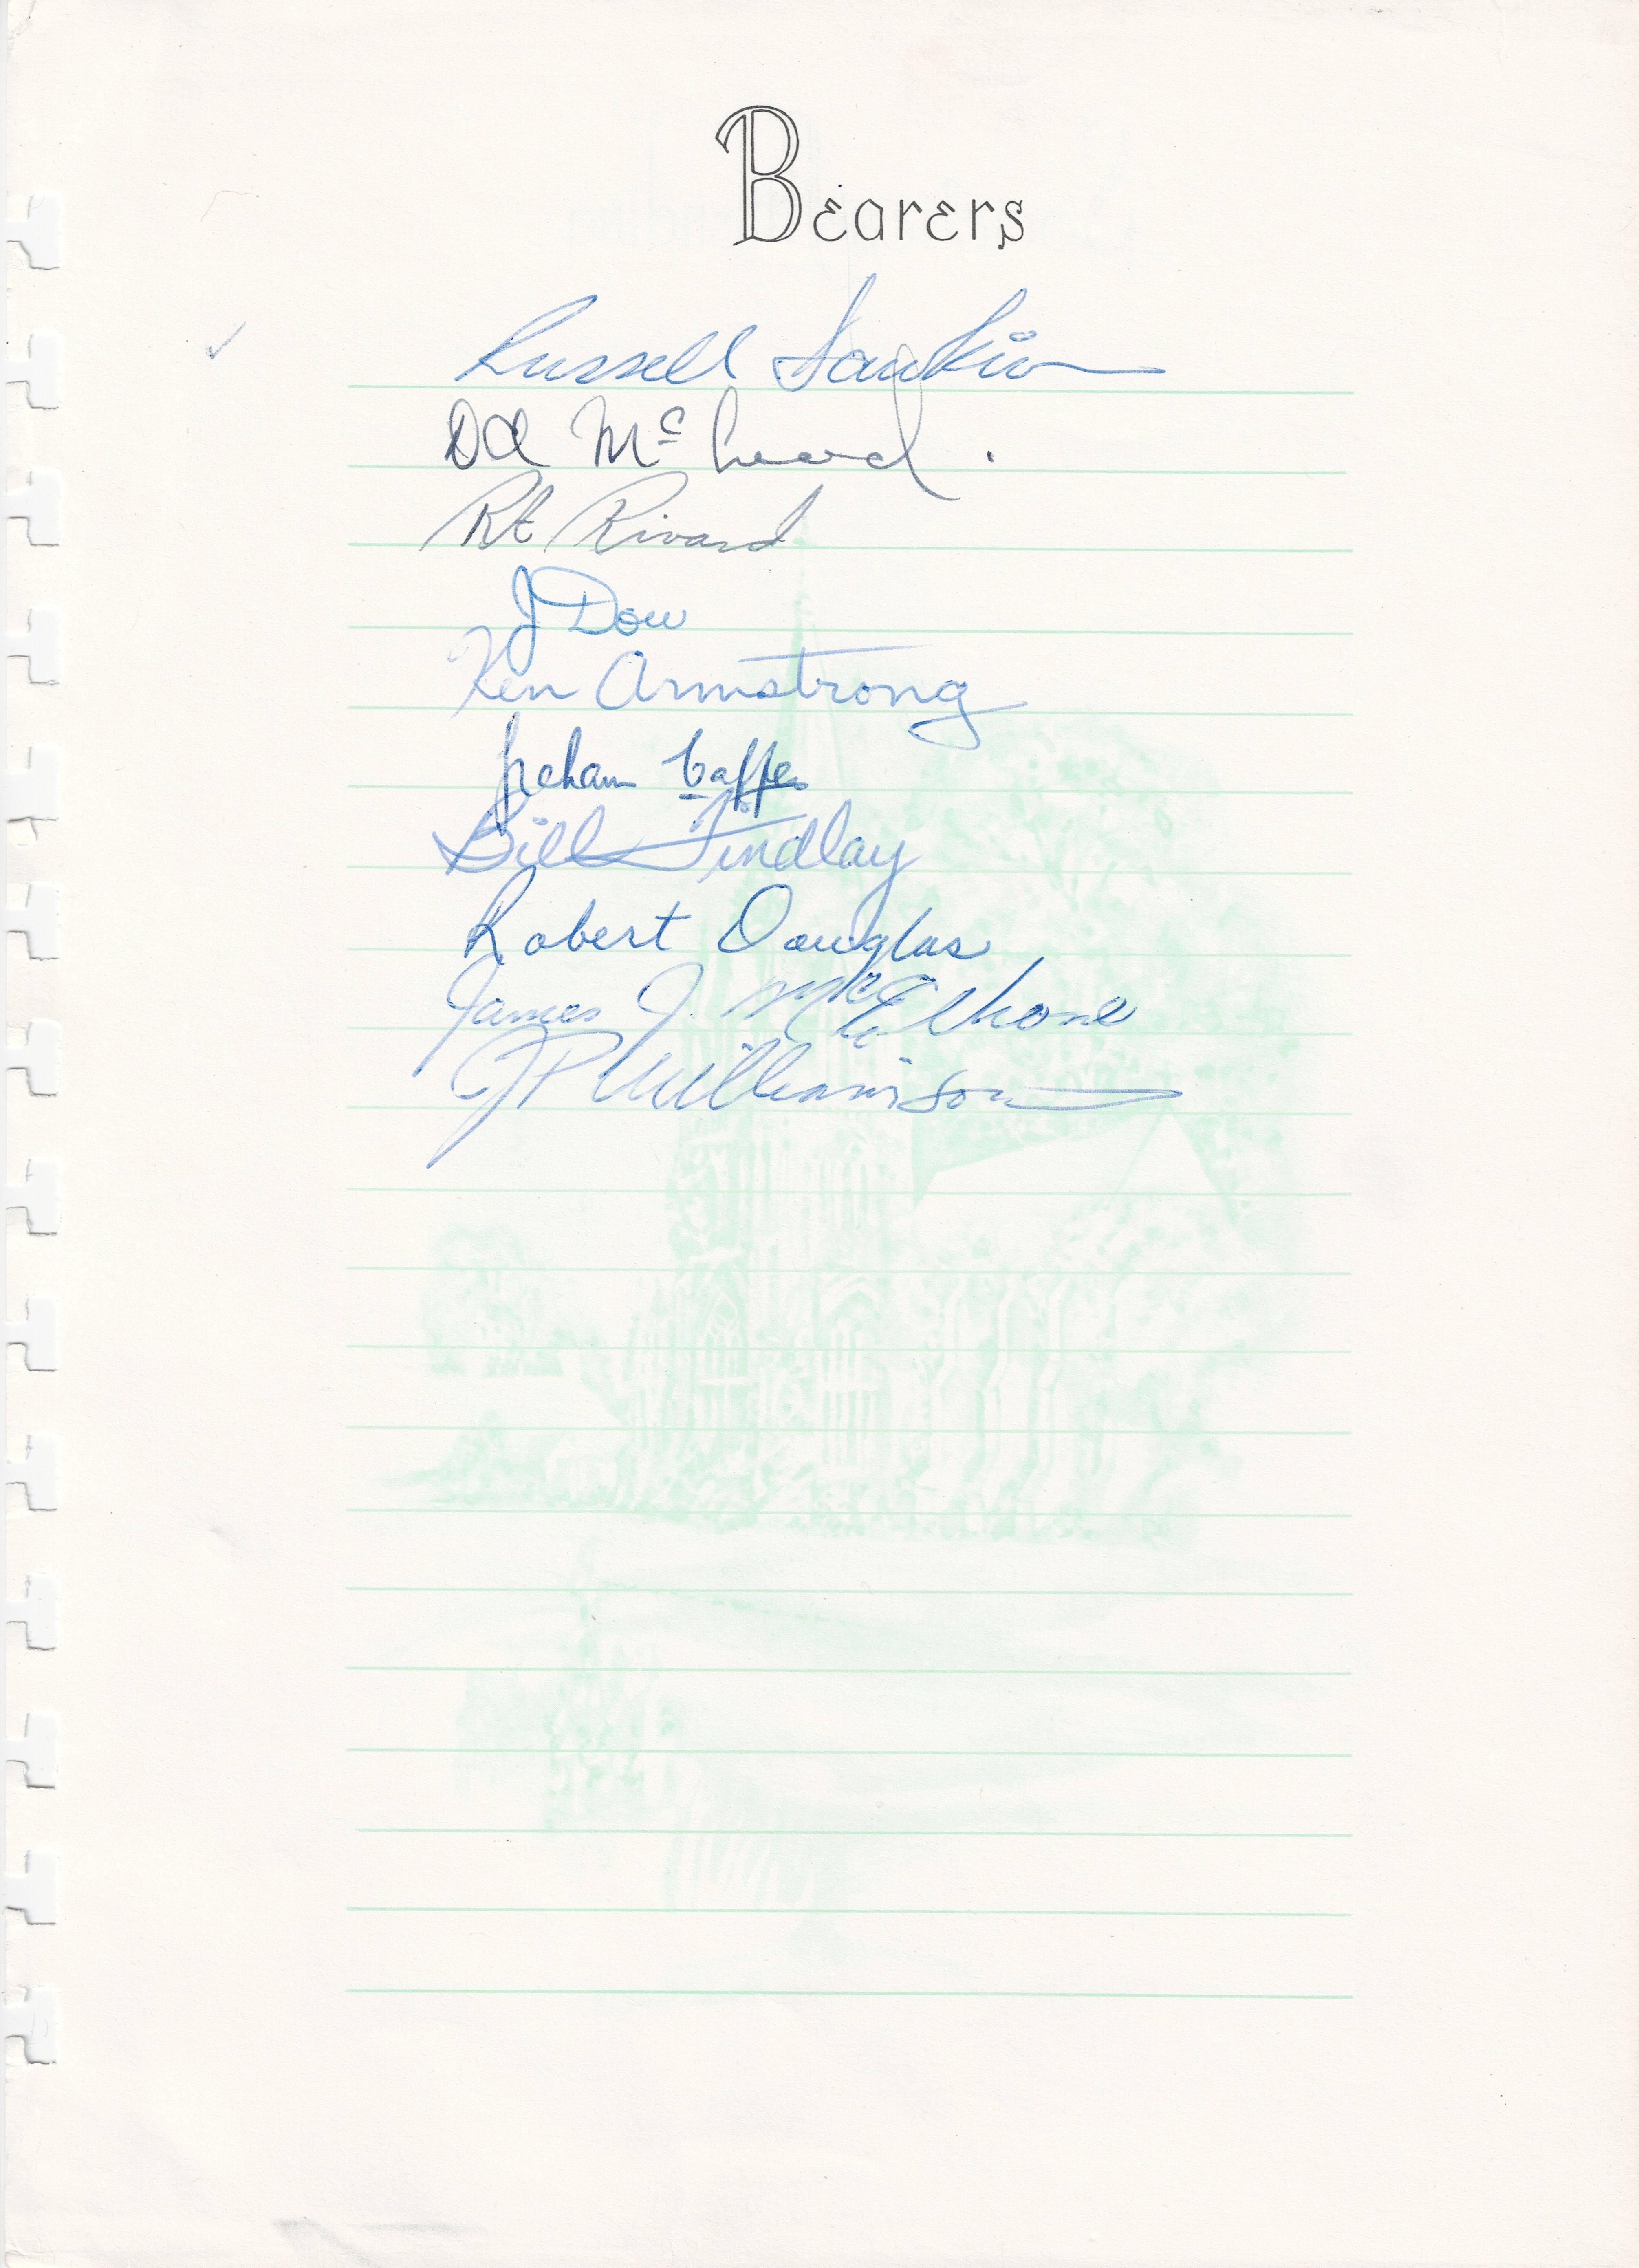 Bearers
Russell
DA Mc
Rt Rivard
J Dow
Ken Armstrong
Bill Findlay
Robert Douglas
James J. McElhone
JP Williamson